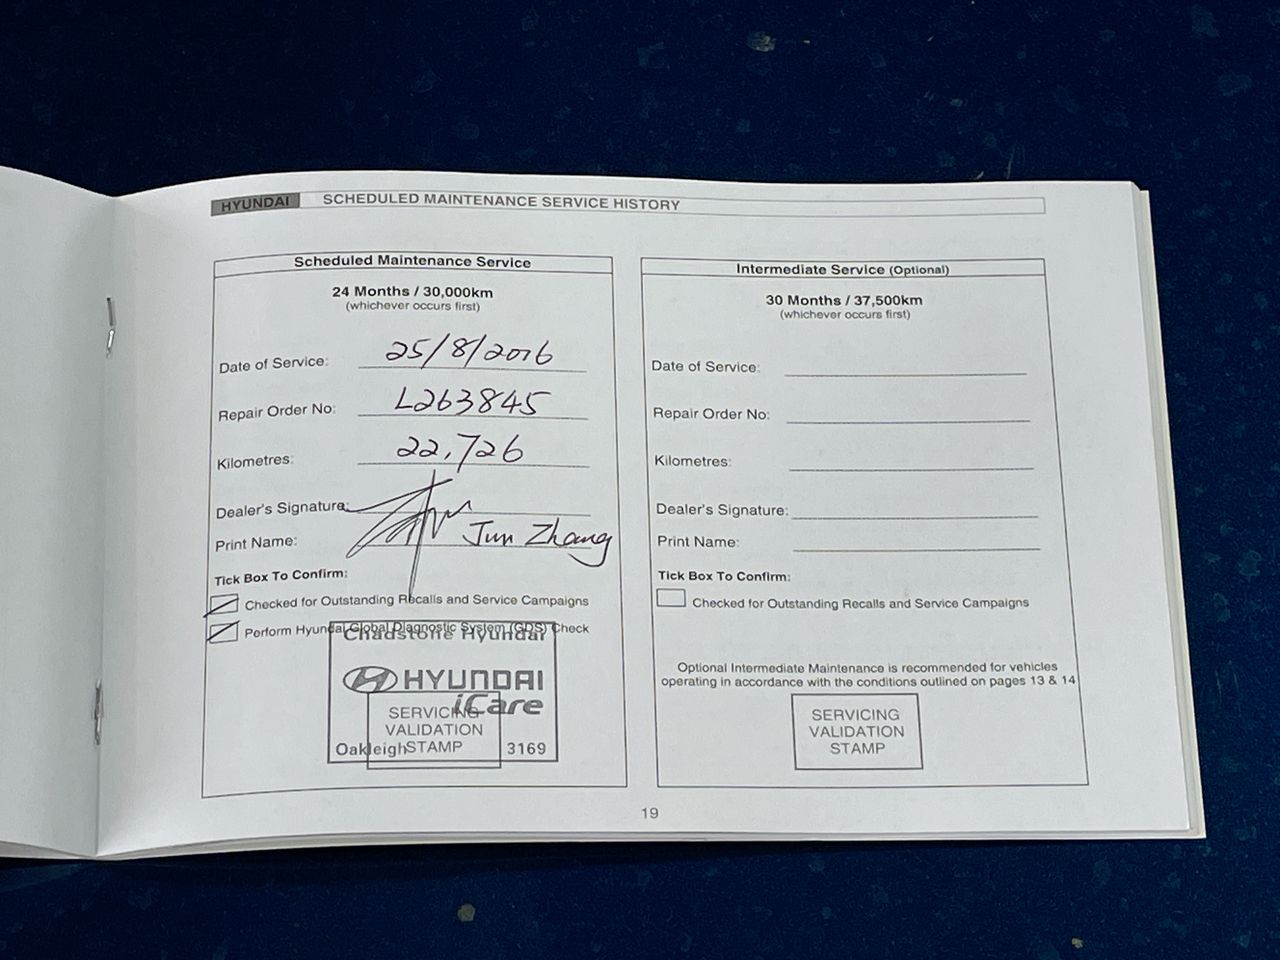 HYUNDAI SCHEDULED MAINTENANCE SERVICE HISTORY
Scheduled Maintenance Service
24 Months / 30,000km
(whichever occurs first)
Date of Service: 25/8/2016
Repair Order No: L263845
Kilometres: 22,726
Dealer's Signature:
Print Name: Jun Zhang
Tick Box To Confirm:
Checked for Outstanding Recalls and Service Campaigns
Perform Hyundai Global Diagnostic System (GDS) Check
Chadstone Hyundai
HYUNDAI
iCare
SERVICING
VALIDATION
STAMP
Oakleigh 3169
Intermediate Service (Optional)
30 Months / 37,500km
(whichever occurs first)
Date of Service:
Repair Order No:
Kilometres:
Dealer's Signature:
Print Name:
Tick Box To Confirm:
Checked for Outstanding Recalls and Service Campaigns
Optional Intermediate Maintenance is recommended for vehicles
operating in accordance with the conditions outlined on pages 13 & 14
SERVICING
VALIDATION
STAMP
19